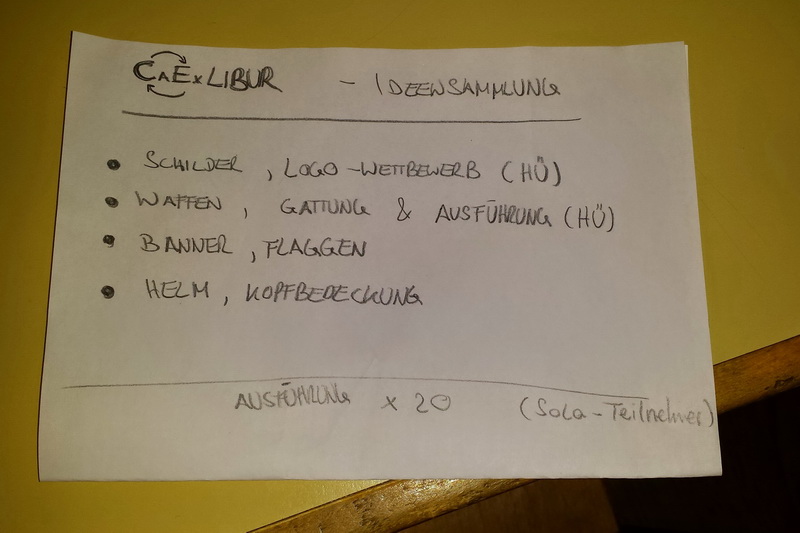 CaExLIBUR - IDEENSAMMLUNG
• SCHILDER, LOGO-WETTBEWERB (HÜ)
• WAFFEN, GATTUNG & AUSFÜHRUNG (HÜ)
• BANNER, FLAGGEN
• HELM, KOPFBEDECKUNG
AUSFÜHRUNG x 20 (Sola-Teilnehmer)